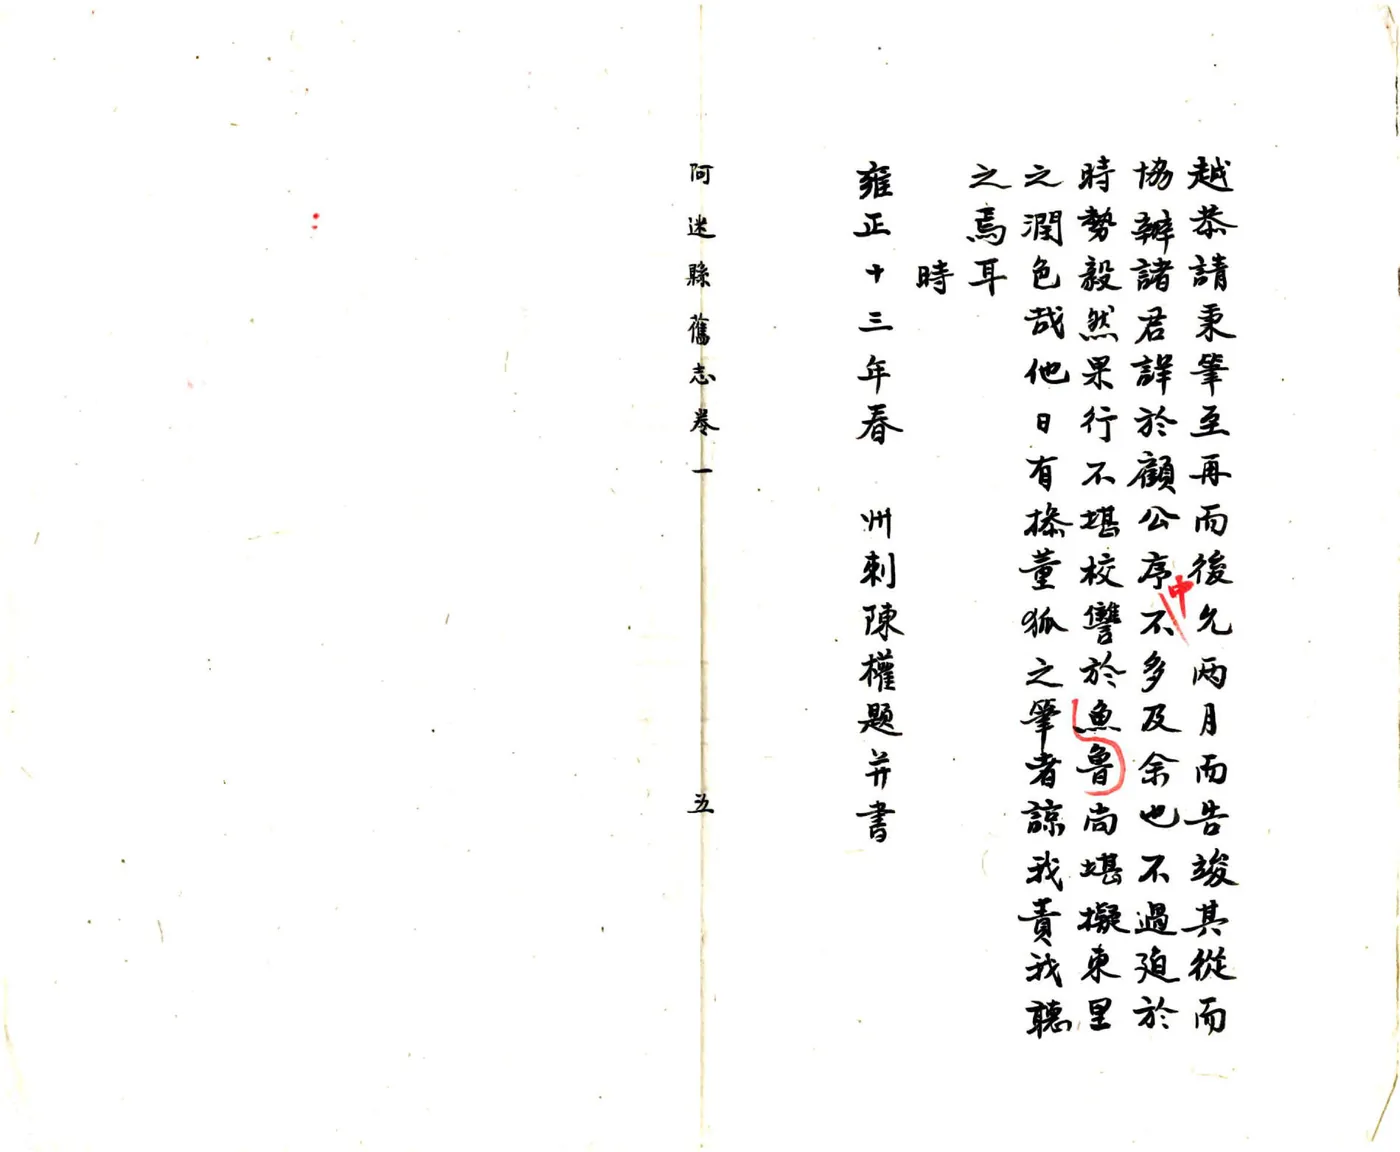 越恭請秉筆至再而後允两月而告竣其從而
協辦諸君詳於顧公序中不多及余也不過廹於
時勢毅然果行不堪校讐於魚魯尚堪擬東里
之潤色哉他日有操董狐之筆者諒我責我聽
之焉耳
時
雍正十三年春 州刺陳權題并書
阿迷縣舊志卷一 五